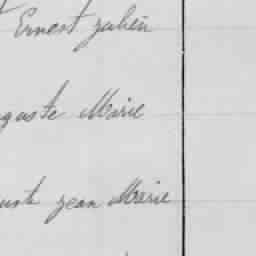 Ernest Julien
guste Marie
uste jean Marie